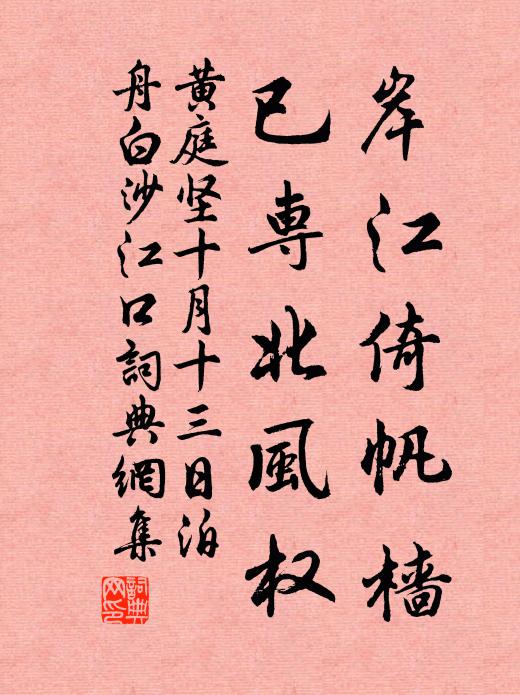 岸江倚帆檣
已専北風权
黄庭坚十月十三日泊
舟白沙江口詞典網集
詞典网印